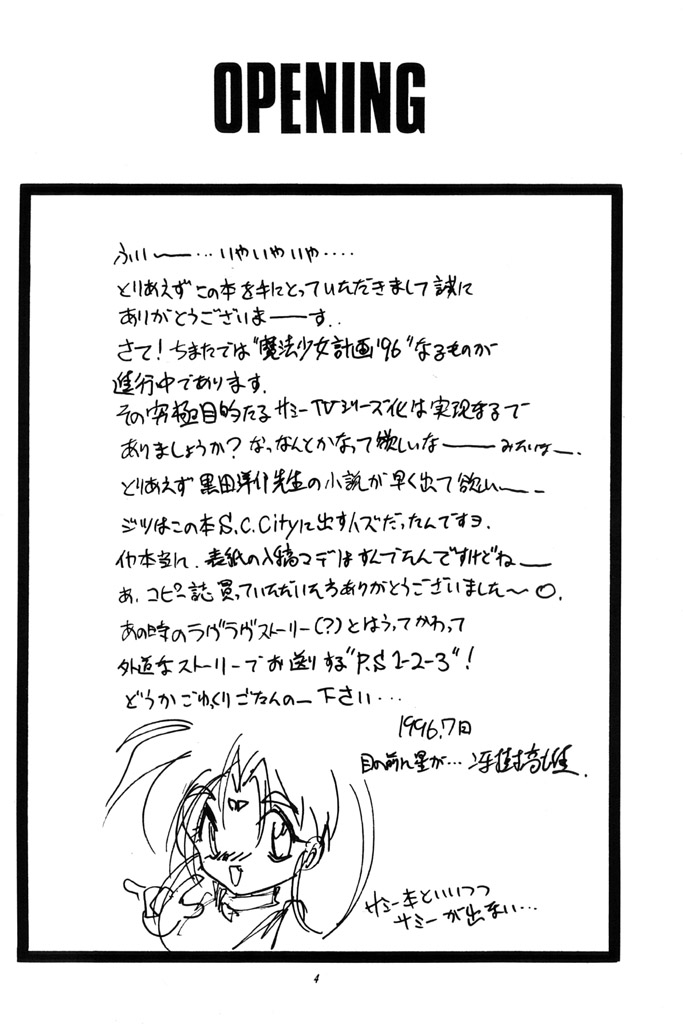 OPENING
ふいー…いやいやいや‥‥
とりあえずこの本を手にとっていただきまして誠に
ありがとうございまーーす‥
さて！ちまたでは"魔法少女計画'96"なるものが
進行中であります.
その究極目的たるサミーTVシリーズ化は実現するまで
ありましょうか？なっなんとかなって欲しいなーーみたいなー.
とりあえず黒田洋介先生の小説が早く出て欲しい〜ー
ジツはこの本S.C.Cityに出すハズだったんですヨ.
イヤ本当に.表紙の入稿マデはすんでたんですけどねー
あ.コピー誌買っていただいた方ありがとうございました〜○.
あの時のラヴラヴストーリー(?)とはうってかわって
外道なストーリーでお送りする"P.S 1-2-3"！
どうかごゆっくりごたんのー下さい…
1996.7月
目の前に星が…冴樹高雄.
サミー本といいつつ
サミーが出ない…
4